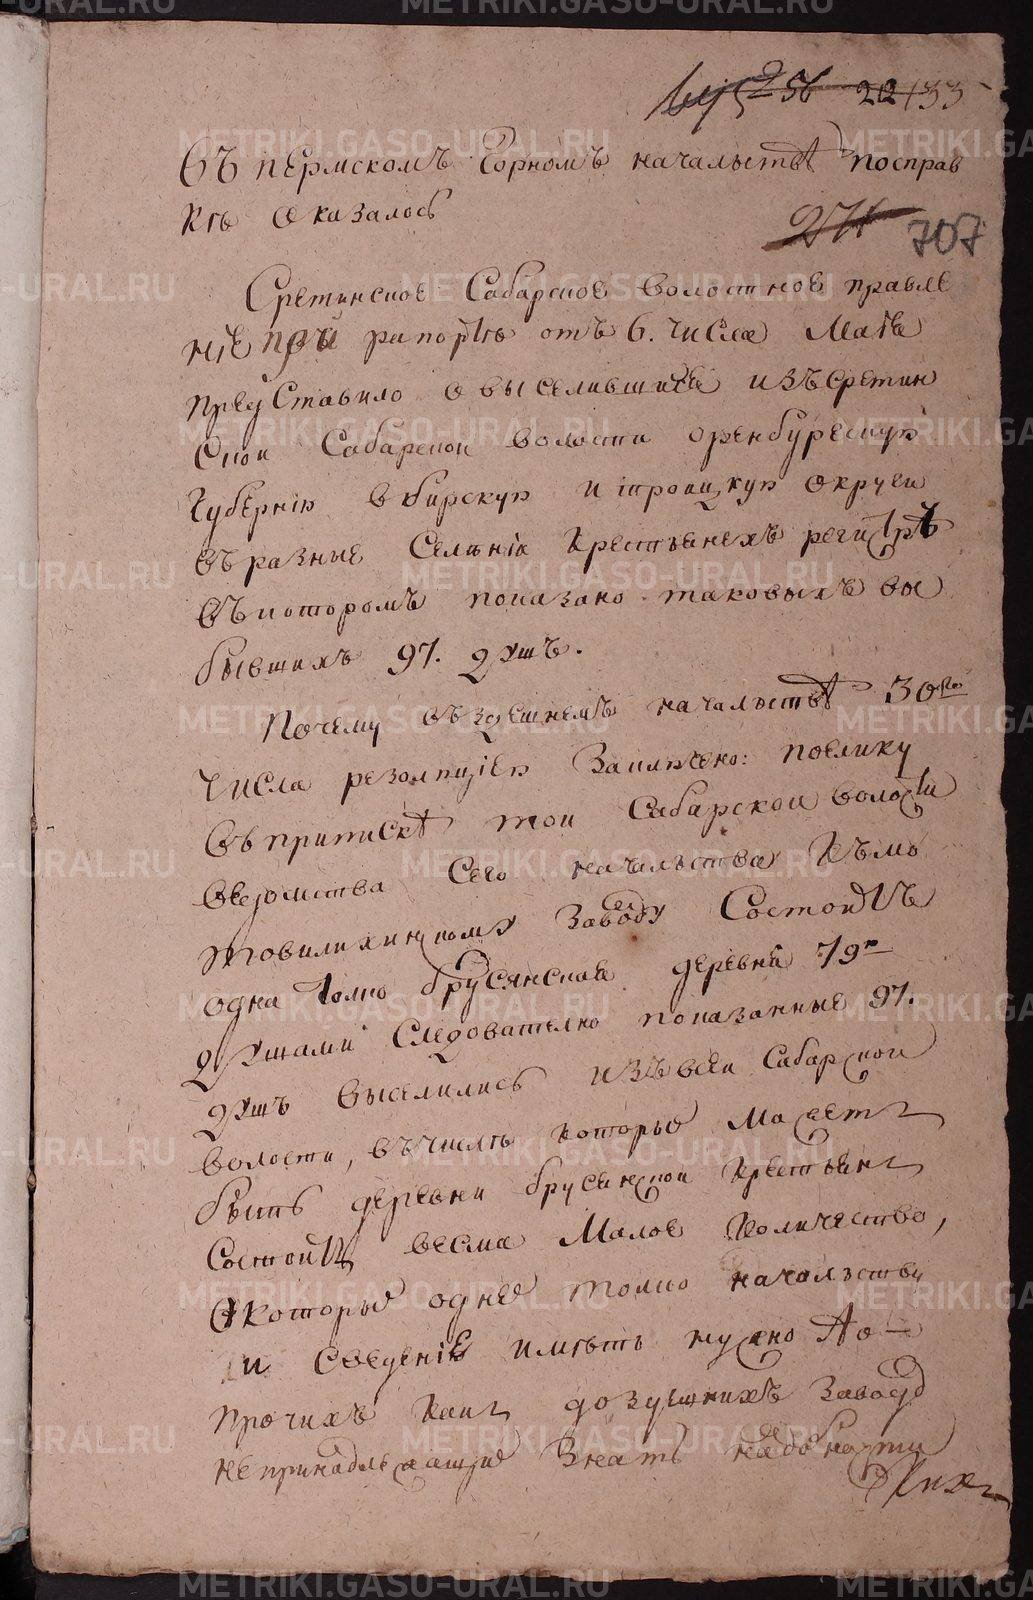 256 22 133
Въ пермскомъ Горномъ началстве посправ
кѣ оказалось
274 707
Сретинское Сабарское волостное правле
ніе при рапортѣ отъ 6. числа Маія
представило о выселившихся изъ сретин
скои Сабарскои волости оренбурскую
губернію в бирскую и троицкую округи
въ разные Селеніи крестьянехъ регистръ
въ которомъ показано таковыхъ вы
бывшихъ 97. душъ.
Почему въ здешнемъ началстве 30го
числа резолюціею заключено: поелику
въ приписке тои Сабарскои волости
ведомства Сего началства къ мо
товилихинскому заводу Состоитъ
одна толко брусянская деревня 79ю
душами Следователно показанные 97.
душъ выселились изъ всеи Сабарскои
волости, въ числѣ которые Можетъ
быть деревни брусенскои крестьянъ
Состоитъ весма Малое количество,
О которые однеѣ толко началству
и сведеніе имѣть нужно А о
прочихъ какъ до здешнихъ заводо
непринадлежащие знать надобности
ихъ
METRIKI.GASO-URAL.RU